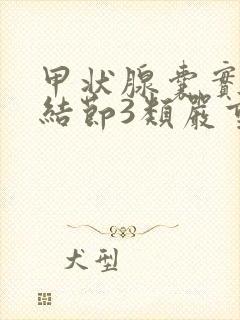 甲状腺囊實
結節3類嚴重
犬型